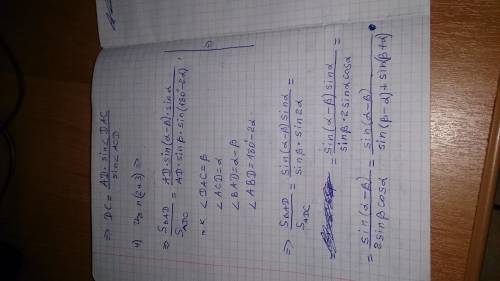 ⇒ DC = AD · sin∠DAC / sin∠ACD
4) Из п (2 и 3) ⇒
⇒ S_BAD / S_ADC = AD · sin(α-β) · sinα / AD · sinβ · sin(180°-2α) ,
т.к. ∠DAC = β
∠ACD = α
∠BAD = α-β
∠ABD = 180°-2α
⇒ S_BAD / S_ADC = sin(α-β) sinα / sinβ · sin2α =
= sin(α-β) sinα / sinβ · 2sinα cosα =
= sin(α-β) / 2sinβ cosα = sin(α-β) / sin(β-α) + sin(β+α) .